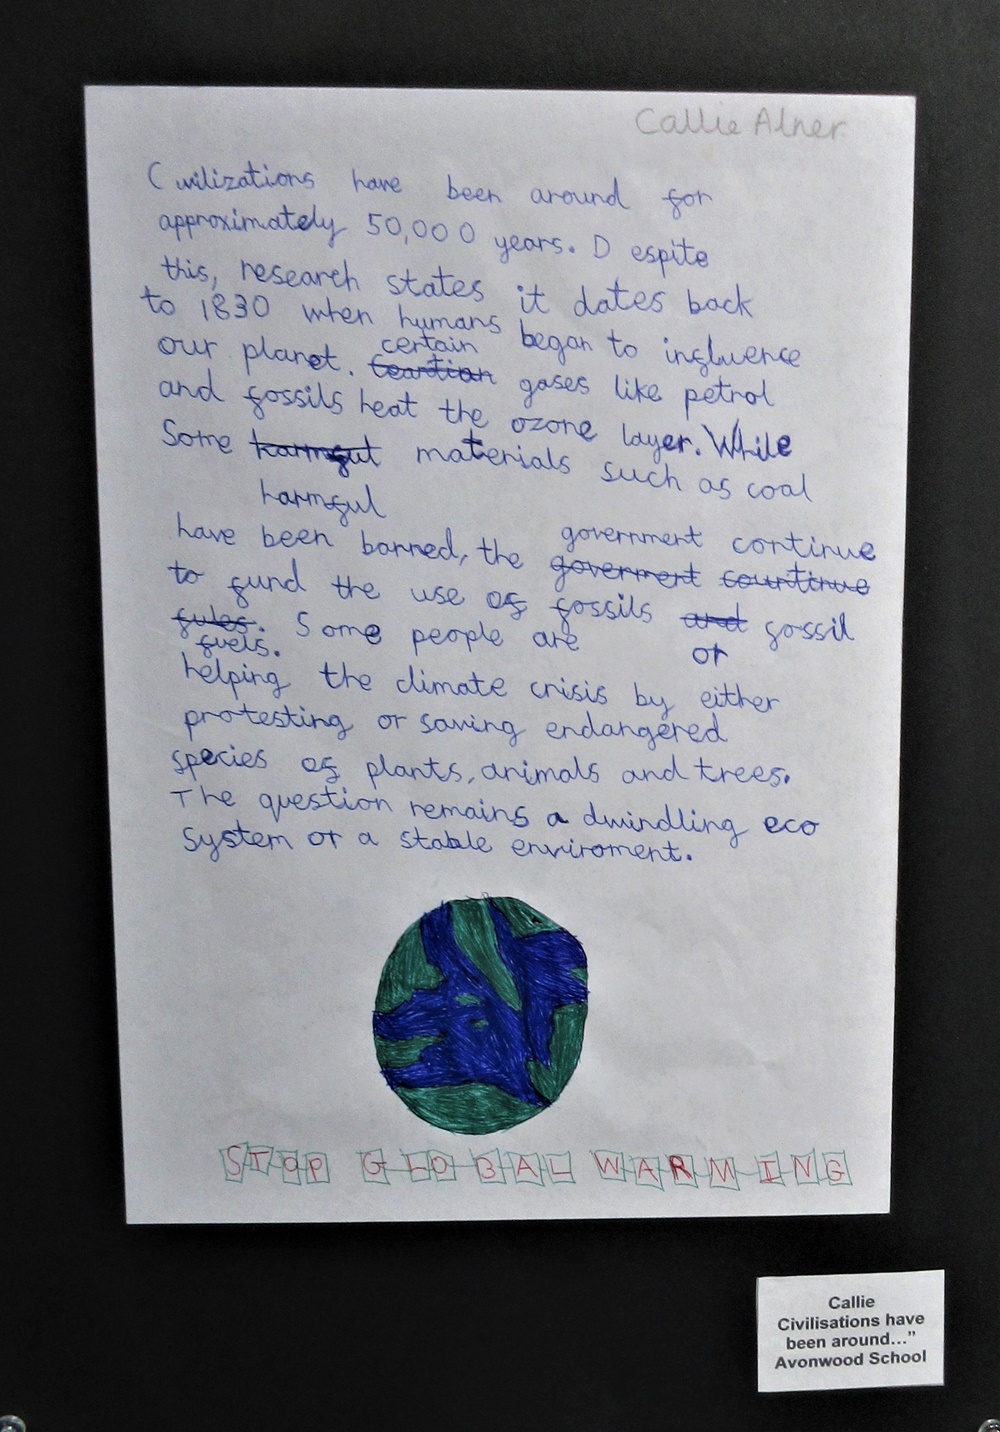 Callie Alner
Civilizations have been around for
approximately 50,000 years. Despite
this, research states it dates back
to 1830 when humans began to influence
certain
our planet. Ceartian gases like petrol
and fossils heat the ozone layer. While
Some harmful materials such as coal
harmful
government continue
have been banned, the goverment countinue
to fund the use of fossils and fossil
fules. Some people are or
fuels.
helping the climate crisis by either
protesting or saving endangered
species of plants, animals and trees.
The question remains a dwindling eco
system or a stable enviroment.
STOP GLOBAL WARMING
Callie
Civilisations have
been around..."
Avonwood School